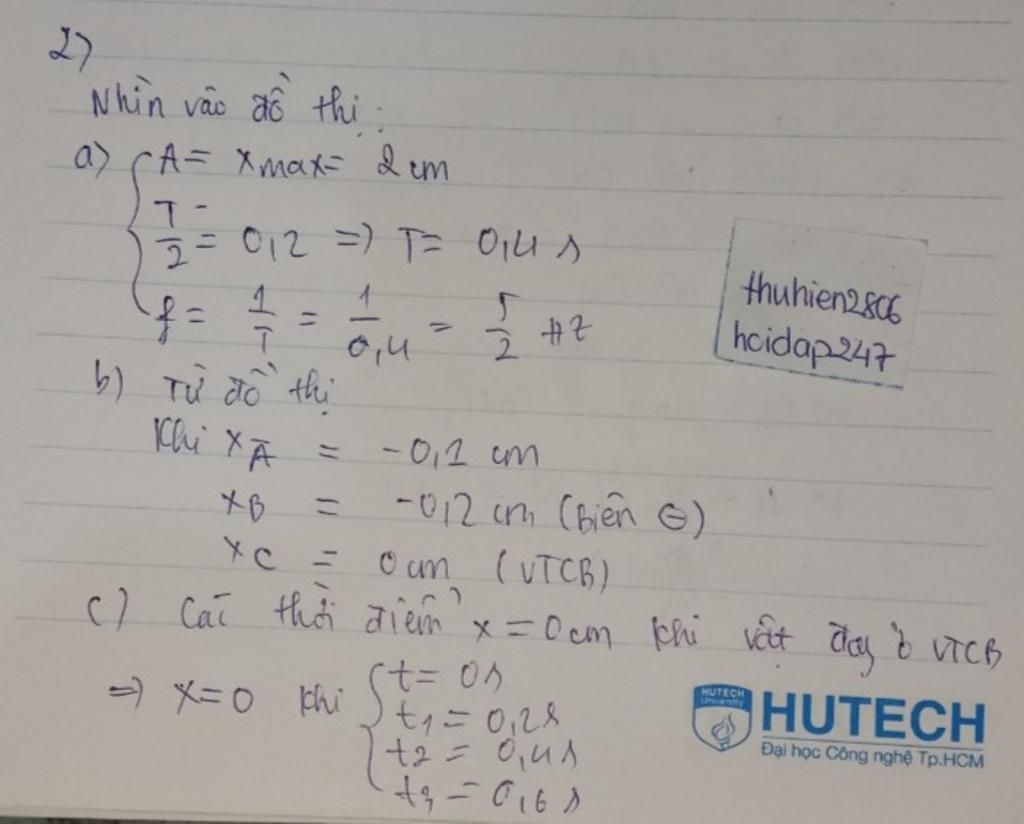 2)
Nhìn vào đồ thị:
a) A = xmax = 2 cm
T/2 = 0,2 => T = 0,4 s
f = 1/T = 1/0,4 = 5/2 Hz
thuhien2806
hoidap247
b) Từ đồ thị
Khi xA = -0,1 cm
xB = -0,2 cm (Biên ⊖)
xC = 0 cm (VTCB)
c) Các thời điểm x = 0 cm khi vật đag ở VTCB
=> x = 0 khi t = 0 s
t1 = 0,2 s
t2 = 0,4 s
t3 = 0,6 s
HUTECH
University
HUTECH
Đại học Công nghệ Tp.HCM